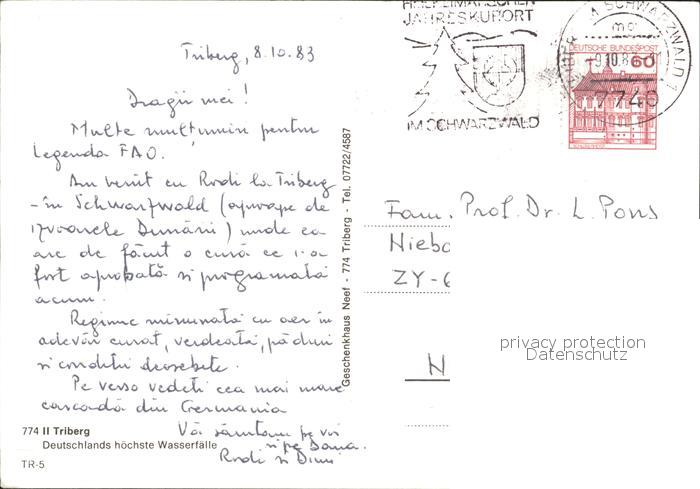 Triberg, 8.10.83
Dragii mei!
Multe mulțumiri pentru
legenda FAO.
Am venit cu Rodi la Triberg
- în Schwarzwald (aproape de
izvoarele Dunării) unde ea
are de făcut o cură ce i-a
fost aprobată și programată
acum.
Regiune minunată cu aer în
adevăr curat, verdeață, păduri
și condiții deosebite.
Pe verso vedeți cea mai mare
cascadă din Germania
Vă sărutăm pe voi
și pe Dana.
Rodi și Dinu
774 II Triberg
Deutschlands höchste Wasserfälle
TR-5
Geschenkhaus Neef - 774 Triberg - Tel. 07722/4587
HEILKLIMATISCHER
JAHRESKURORT
IM SCHWARZWALD
IM SCHWARZWALD 1
DEUTSCHE BUNDESPOST
60
7740
Fam. Prof. Dr. L. Pons
ZY-6
privacy protection
Datenschutz